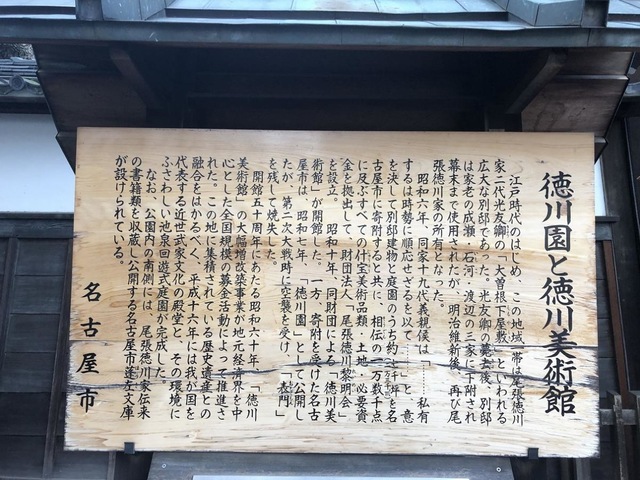 徳川園と徳川美術館
江戸時代のはじめ、この地域一帯は尾張徳川
家二代光友卿の「大曽根下屋敷」といわれる
広大な別邸であった。光友卿の薨去後、別邸
は家老の成瀬・石河・渡辺の三家に下附され
幕末まで使用されたが、明治維新後、再び尾
張徳川家の所有となった。
昭和六年、同家十九代義親侯は「……私有
するは時勢に順応せざるを以て……」と意
を決して別邸建物と庭園のうち約一万千坪を名
古屋市に寄附すると共に、相伝の一万数千点
に及ぶすべての什宝美術品類・土地・必要資
金を拠出して、財団法人「尾張徳川黎明会」
を設立。昭和十年、同財団による「徳川美
術館」が開館した。一方、寄附を受けた名古
屋市は、昭和七年、「徳川園」として公開し
たが、第二次大戦時に空襲を受け、「表門」
を残して焼失した。
開館五十周年にあたる昭和六十年、「徳川
美術館」の大幅増改築事業が地元経済界を中
心とした全国規模の募金活動によって推進さ
れた。この地に集積されている歴史遺産との
融合をはかるべく、平成十六年には我が国を
代表する近世武家文化の殿堂と、その環境に
ふさわしい池泉回遊式庭園が完成した。
なお、公園内の南側には、尾張徳川家伝来
の書籍類を収蔵し公開する名古屋市蓬左文庫
が設けられている。
名古屋市